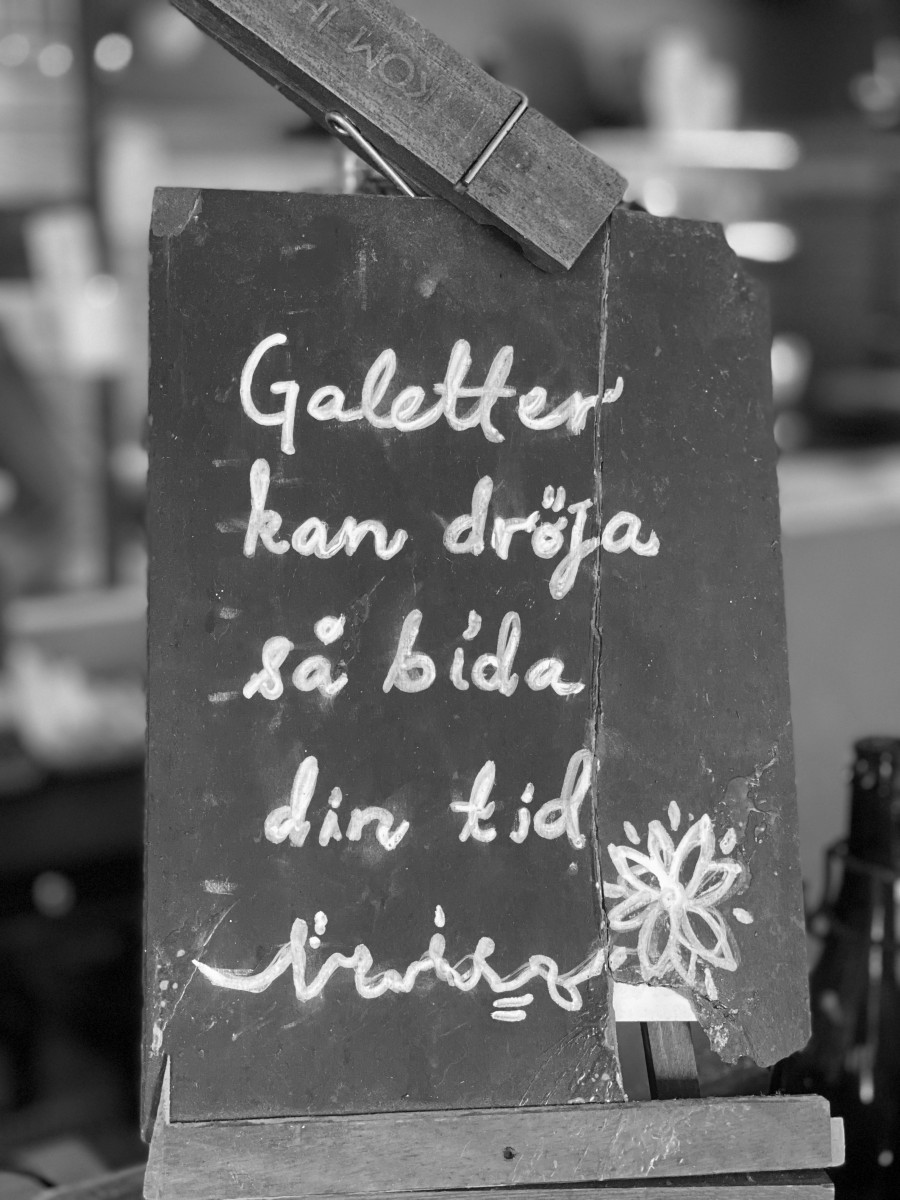 KOM IH
Galetter
kan dröja
så bida
din tid